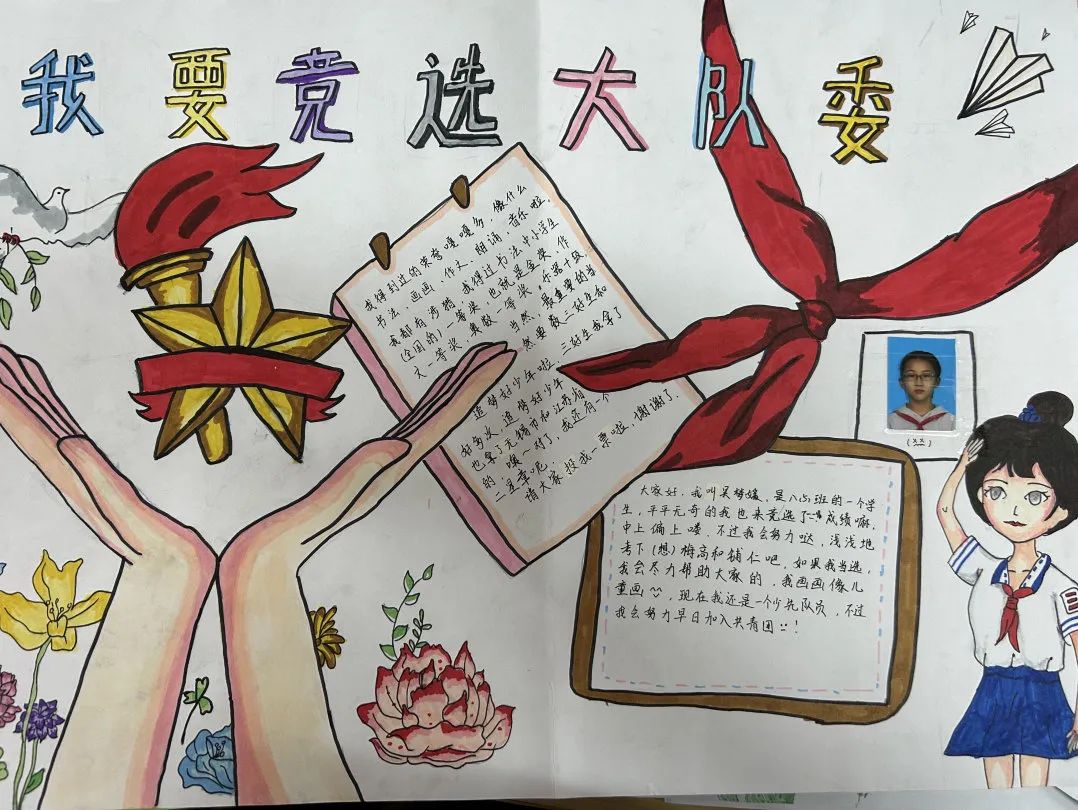 我要竞选大队委
我得到过的荣誉嘎嘎多，像什么
书法，画画，作文，朗诵，音乐啦，
我都有涉猎，我得过书法中小学生
(全国的)一等奖，也就是金奖，作
文一等奖，奥数一等奖，乐器十级，
当然，最重要的当
然要数三好生和
追梦好少年啦，三好生我拿了
好多次，追梦好少年
也拿了无锡市和江苏省
的噢~对了，我还有一个
二星章呢
请大家投我一票啦，谢谢了.
大家好，我叫吴梦，是八(5)班的一个学
生，平平无奇的我也来竞选了，成绩嘛，
中上偏上喽，不过我会努力哒，浅浅地
考下(想)梅高和辅仁吧，如果我当选，
我会尽力帮助大家的，我画画像儿
童画，现在我还是一个少先队员，不过
我会努力早日加入共青团！